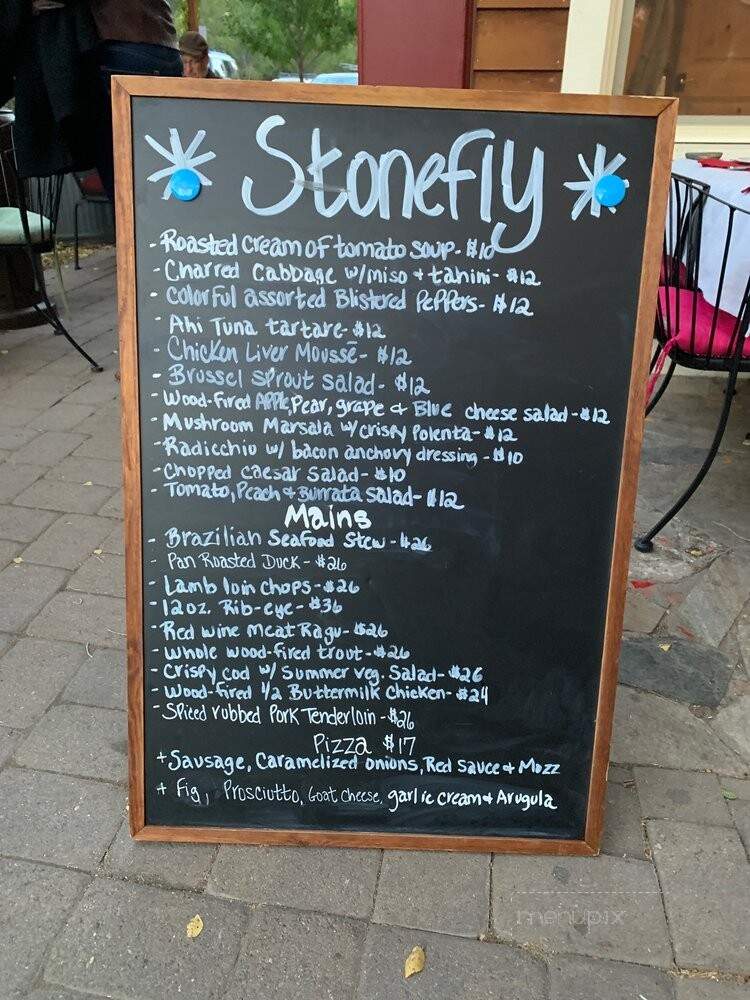 Stonefly
- Roasted cream of tomato soup - $10
- Charred Cabbage w/miso + tahini - $12
- Colorful assorted Blistered Peppers - $12
- Ahi Tuna tartare - $12
- Chicken Liver Moussē - $12
- Brussel sprout salad - $12
- Wood-fired Apple, Pear, grape & Blue cheese salad - $12
- Mushroom Marsala w/crispy Polenta - $12
- Radicchio w/ bacon anchovy dressing - $10
- Chopped caesar Salad - $10
- Tomato, Peach & Burrata salad - $12
Mains
- Brazilian Seafood Stew - $26
- Pan Roasted Duck - $26
- Lamb loin chops - $26
- 12oz. Rib-eye - $36
- Red wine meat Ragu - $26
- whole wood-fired trout - $26
- Crispy cod w/ Summer veg. Salad - $26
- Wood-fired 1/2 Buttermilk Chicken - $24
- Spiced rubbed Pork Tenderloin - $26
Pizza $17
+ Sausage, Caramelized onions, Red sauce + Mozz
+ Fig, Prosciutto, Goat cheese, garlic cream + Arugula
menupix